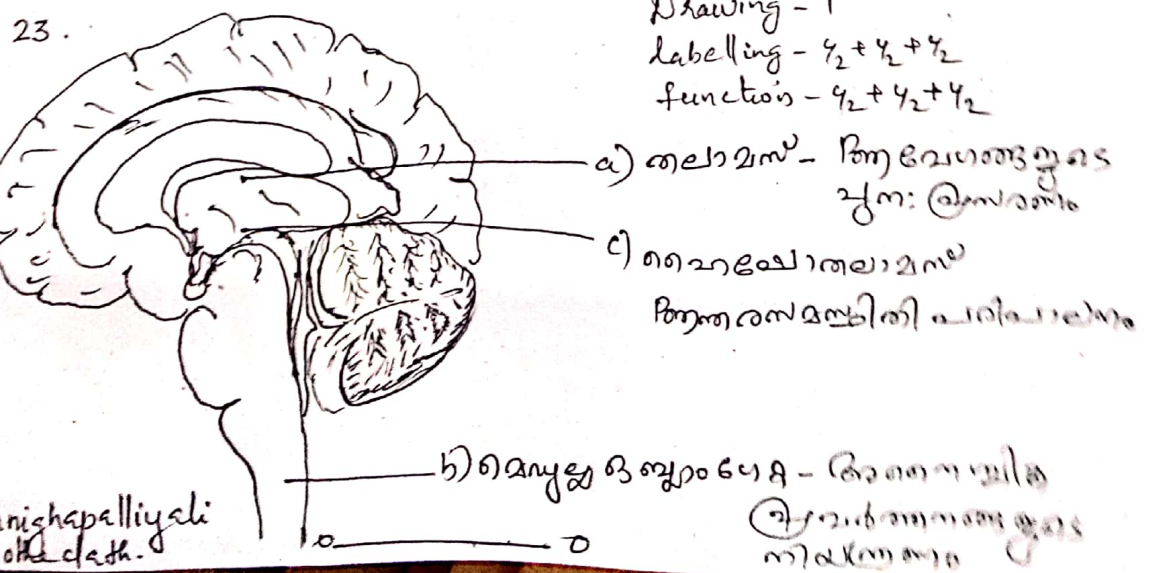 23.
Drawing - 1
labelling - ½ + ½ + ½
function - ½ + ½ + ½
a) തലാമസ് - ആവേഗങ്ങളുടെ
പുന: പ്രസരണം
c) ഹൈപ്പോതലാമസ്
ആന്തരസമസ്ഥിതി പരിപാലനം
b) മെഡുല്ല ഒബ്ലാംഗേറ്റ - അനൈച്ഛിക
പ്രവർത്തനങ്ങളുടെ
നിയന്ത്രണം